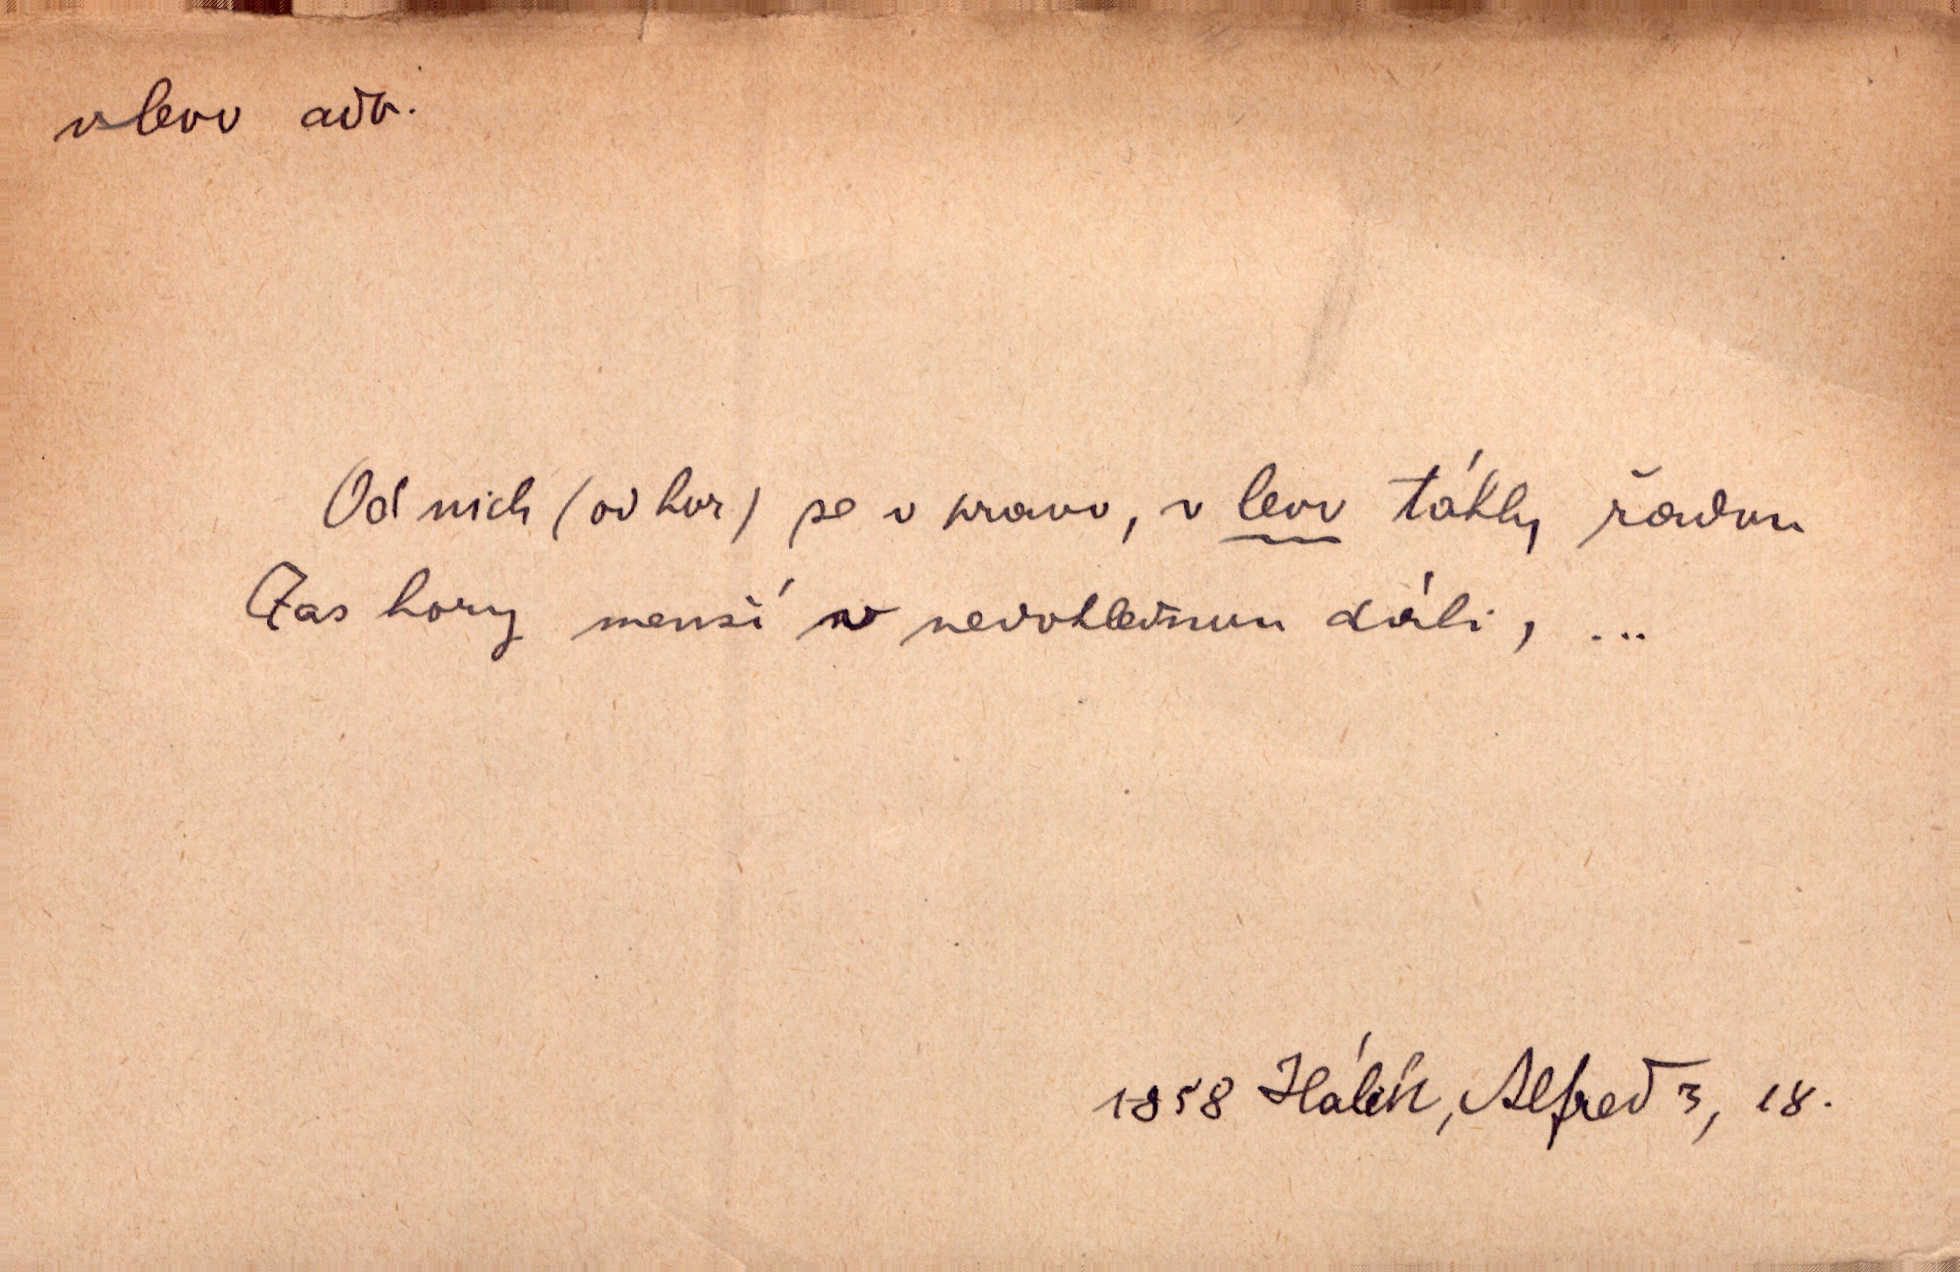 vlevo adv.
Od nich (od hor) se v pravo, v levo táhly řadou
Zas hory menší v nedohlednou dáli, ...
1858 Hálek, Alfred 3, 18.